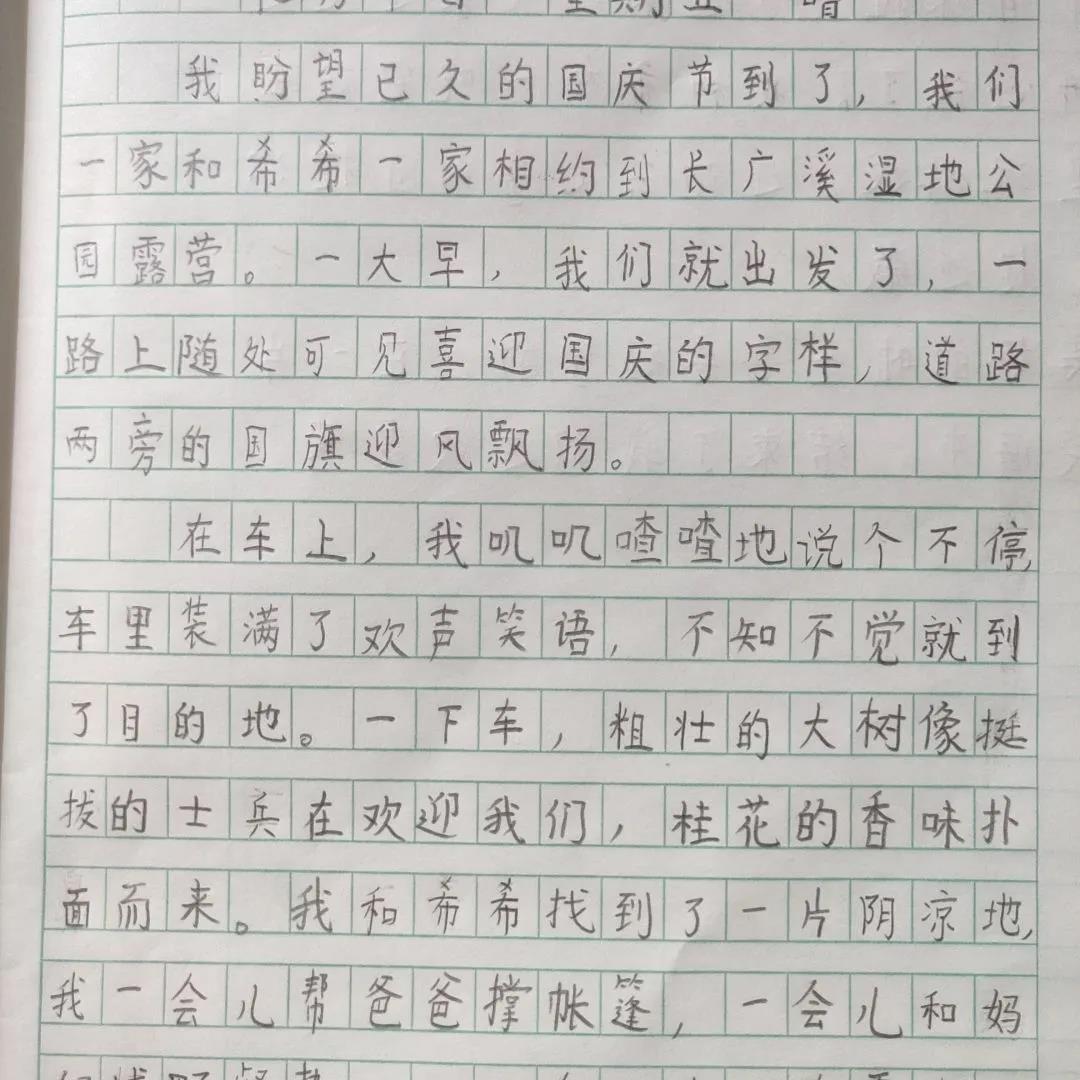 我盼望已久的国庆节到了，我们
一家和希希一家相约到长广溪湿地公
园露营。一大早，我们就出发了，一
路上随处可见喜迎国庆的字样，道路
两旁的国旗迎风飘扬。
在车上，我叽叽喳喳地说个不停，
车里装满了欢声笑语，不知不觉就到
了目的地。一下车，粗壮的大树像挺
拔的士兵在欢迎我们，桂花的香味扑
面而来。我和希希找到了一片阴凉地，
我一会儿帮爸爸撑帐篷，一会儿和妈